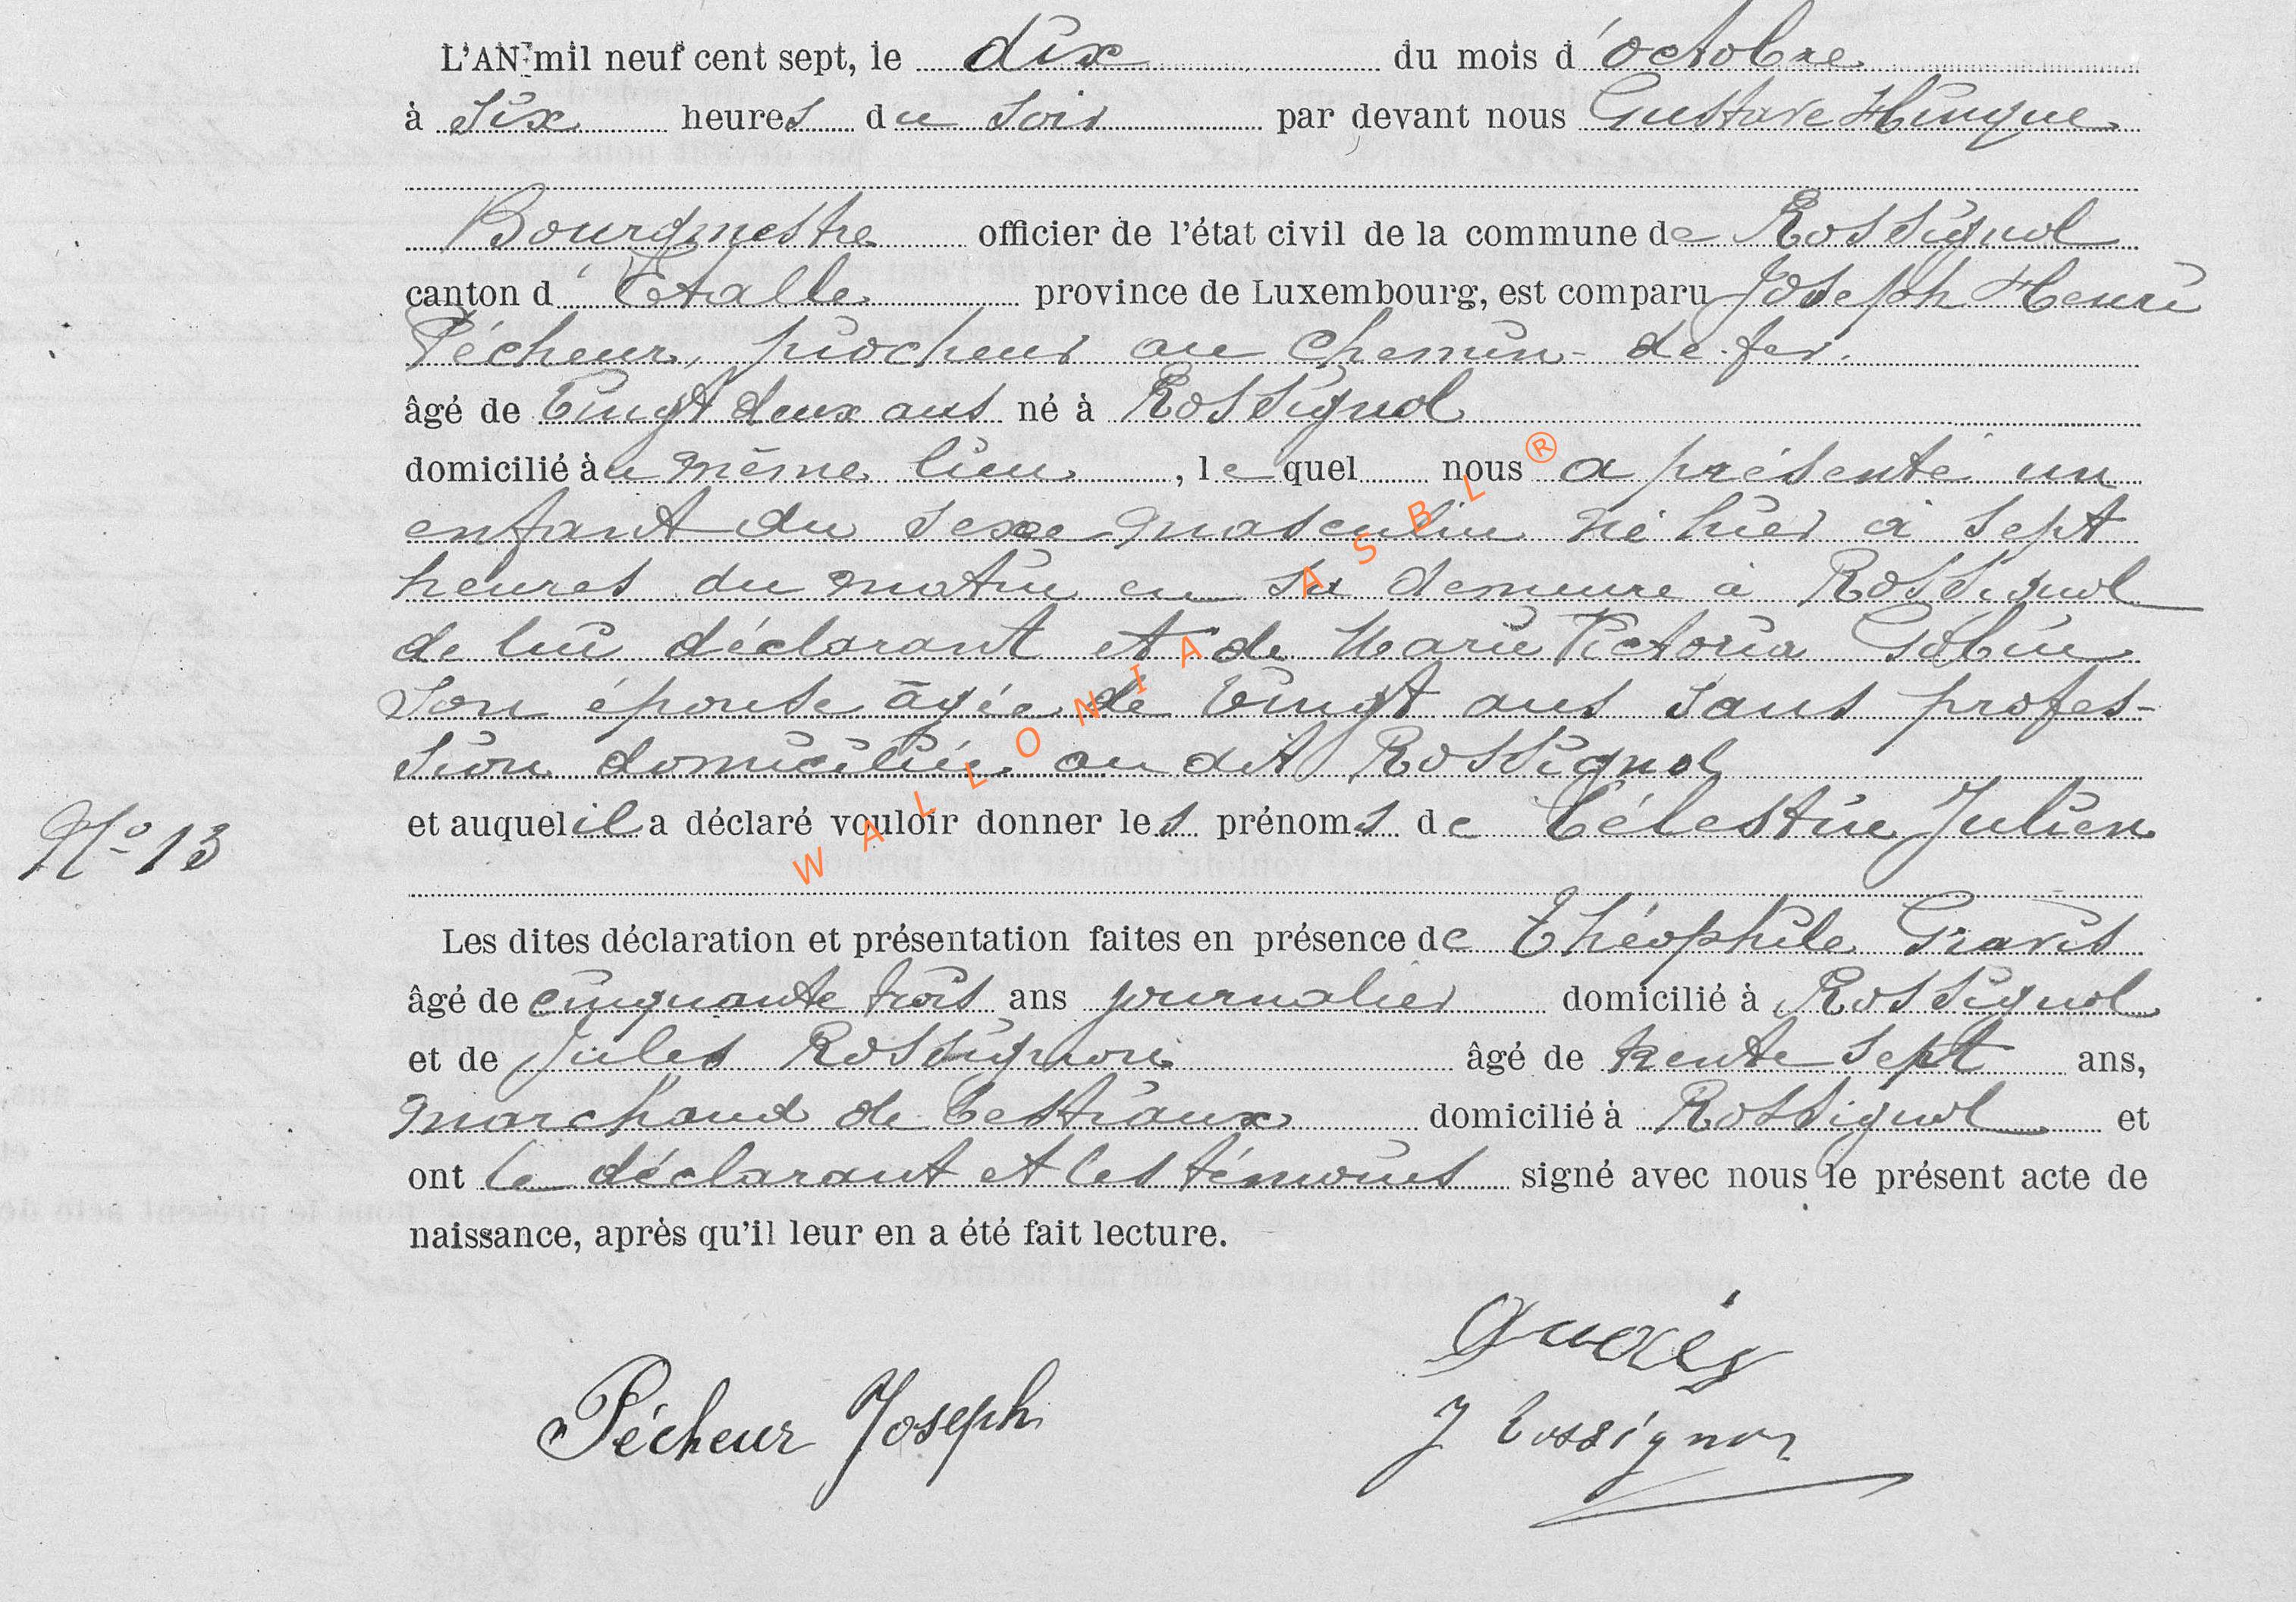 L'AN mil neuf cent sept, le dix du mois d'octobre
à six heures du soir par devant nous Gustave Hurique
Bourgmestre officier de l'état civil de la commune de Rossignol
canton d'Etalle province de Luxembourg, est comparu Joseph Henri
Pécheur, piocheur au chemin-de-fer.
âgé de vingt deux ans né à Rossignol
domicilié au même lieu, lequel nous a présenté un
enfant du sexe masculin né hier à sept
heures du matin en sa demeure à Rossignol
de lui déclarant et de Marie Victoria Gobin
son épouse âgée de vingt ans sans profes-
sion domiciliée au dit Rossignol
et auquel il a déclaré vouloir donner les prénoms de Célestin Julien
N° 13
Les dites déclaration et présentation faites en présence de Théophile Gravis
âgé de cinquante trois ans journalier domicilié à Rossignol
et de Jules Rossignon âgé de trente sept ans,
marchand de bestiaux domicilié à Rossignol et
ont le déclarant et les témoins signé avec nous le présent acte de
naissance, après qu'il leur en a été fait lecture.
Pécheur Joseph
J Rossignon
WALLONIA ASBL ®